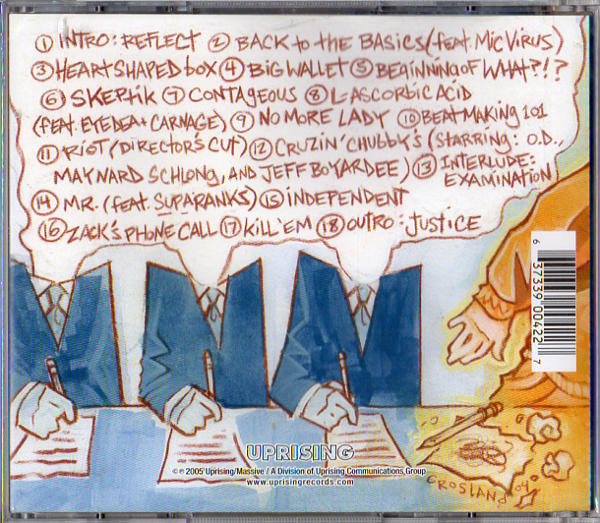 ① INTRO: REFLECT ② BACK to the BASICS (feat. MIC VIRUS)
③ HEART SHAPED bOX ④ BIG WALLET ⑤ BEGINNING OF WHAT?!?
⑥ SKEPTIK ⑦ CONTAGEOUS ⑧ L-ASCORBIC ACID
(FEAT. EYEDEA + CARNAGE) ⑨ NO MORE LADY ⑩ BEAT MAKING 101
⑪ RIOT (DIRECTOR'S CUT) ⑫ CRUZIN' CHUBBY'S (STARRING: O.D.,
MAYNARD SCHLONG, AND JEFF BOYARDEE) ⑬ INTERLUDE:
EXAMINATION
⑭ MR. (feat. SUPARANKS) ⑮ INDEPENDENT
⑯ ZACK'S PHONE CALL ⑰ KILL 'EM ⑱ OUTRO: JUSTICE
6 37339 00422 7
UPRISING
©℗ 2005 Uprising/Massive / A Division of Uprising Communications Group
www.uprisingrecords.com
CROSLAND 04